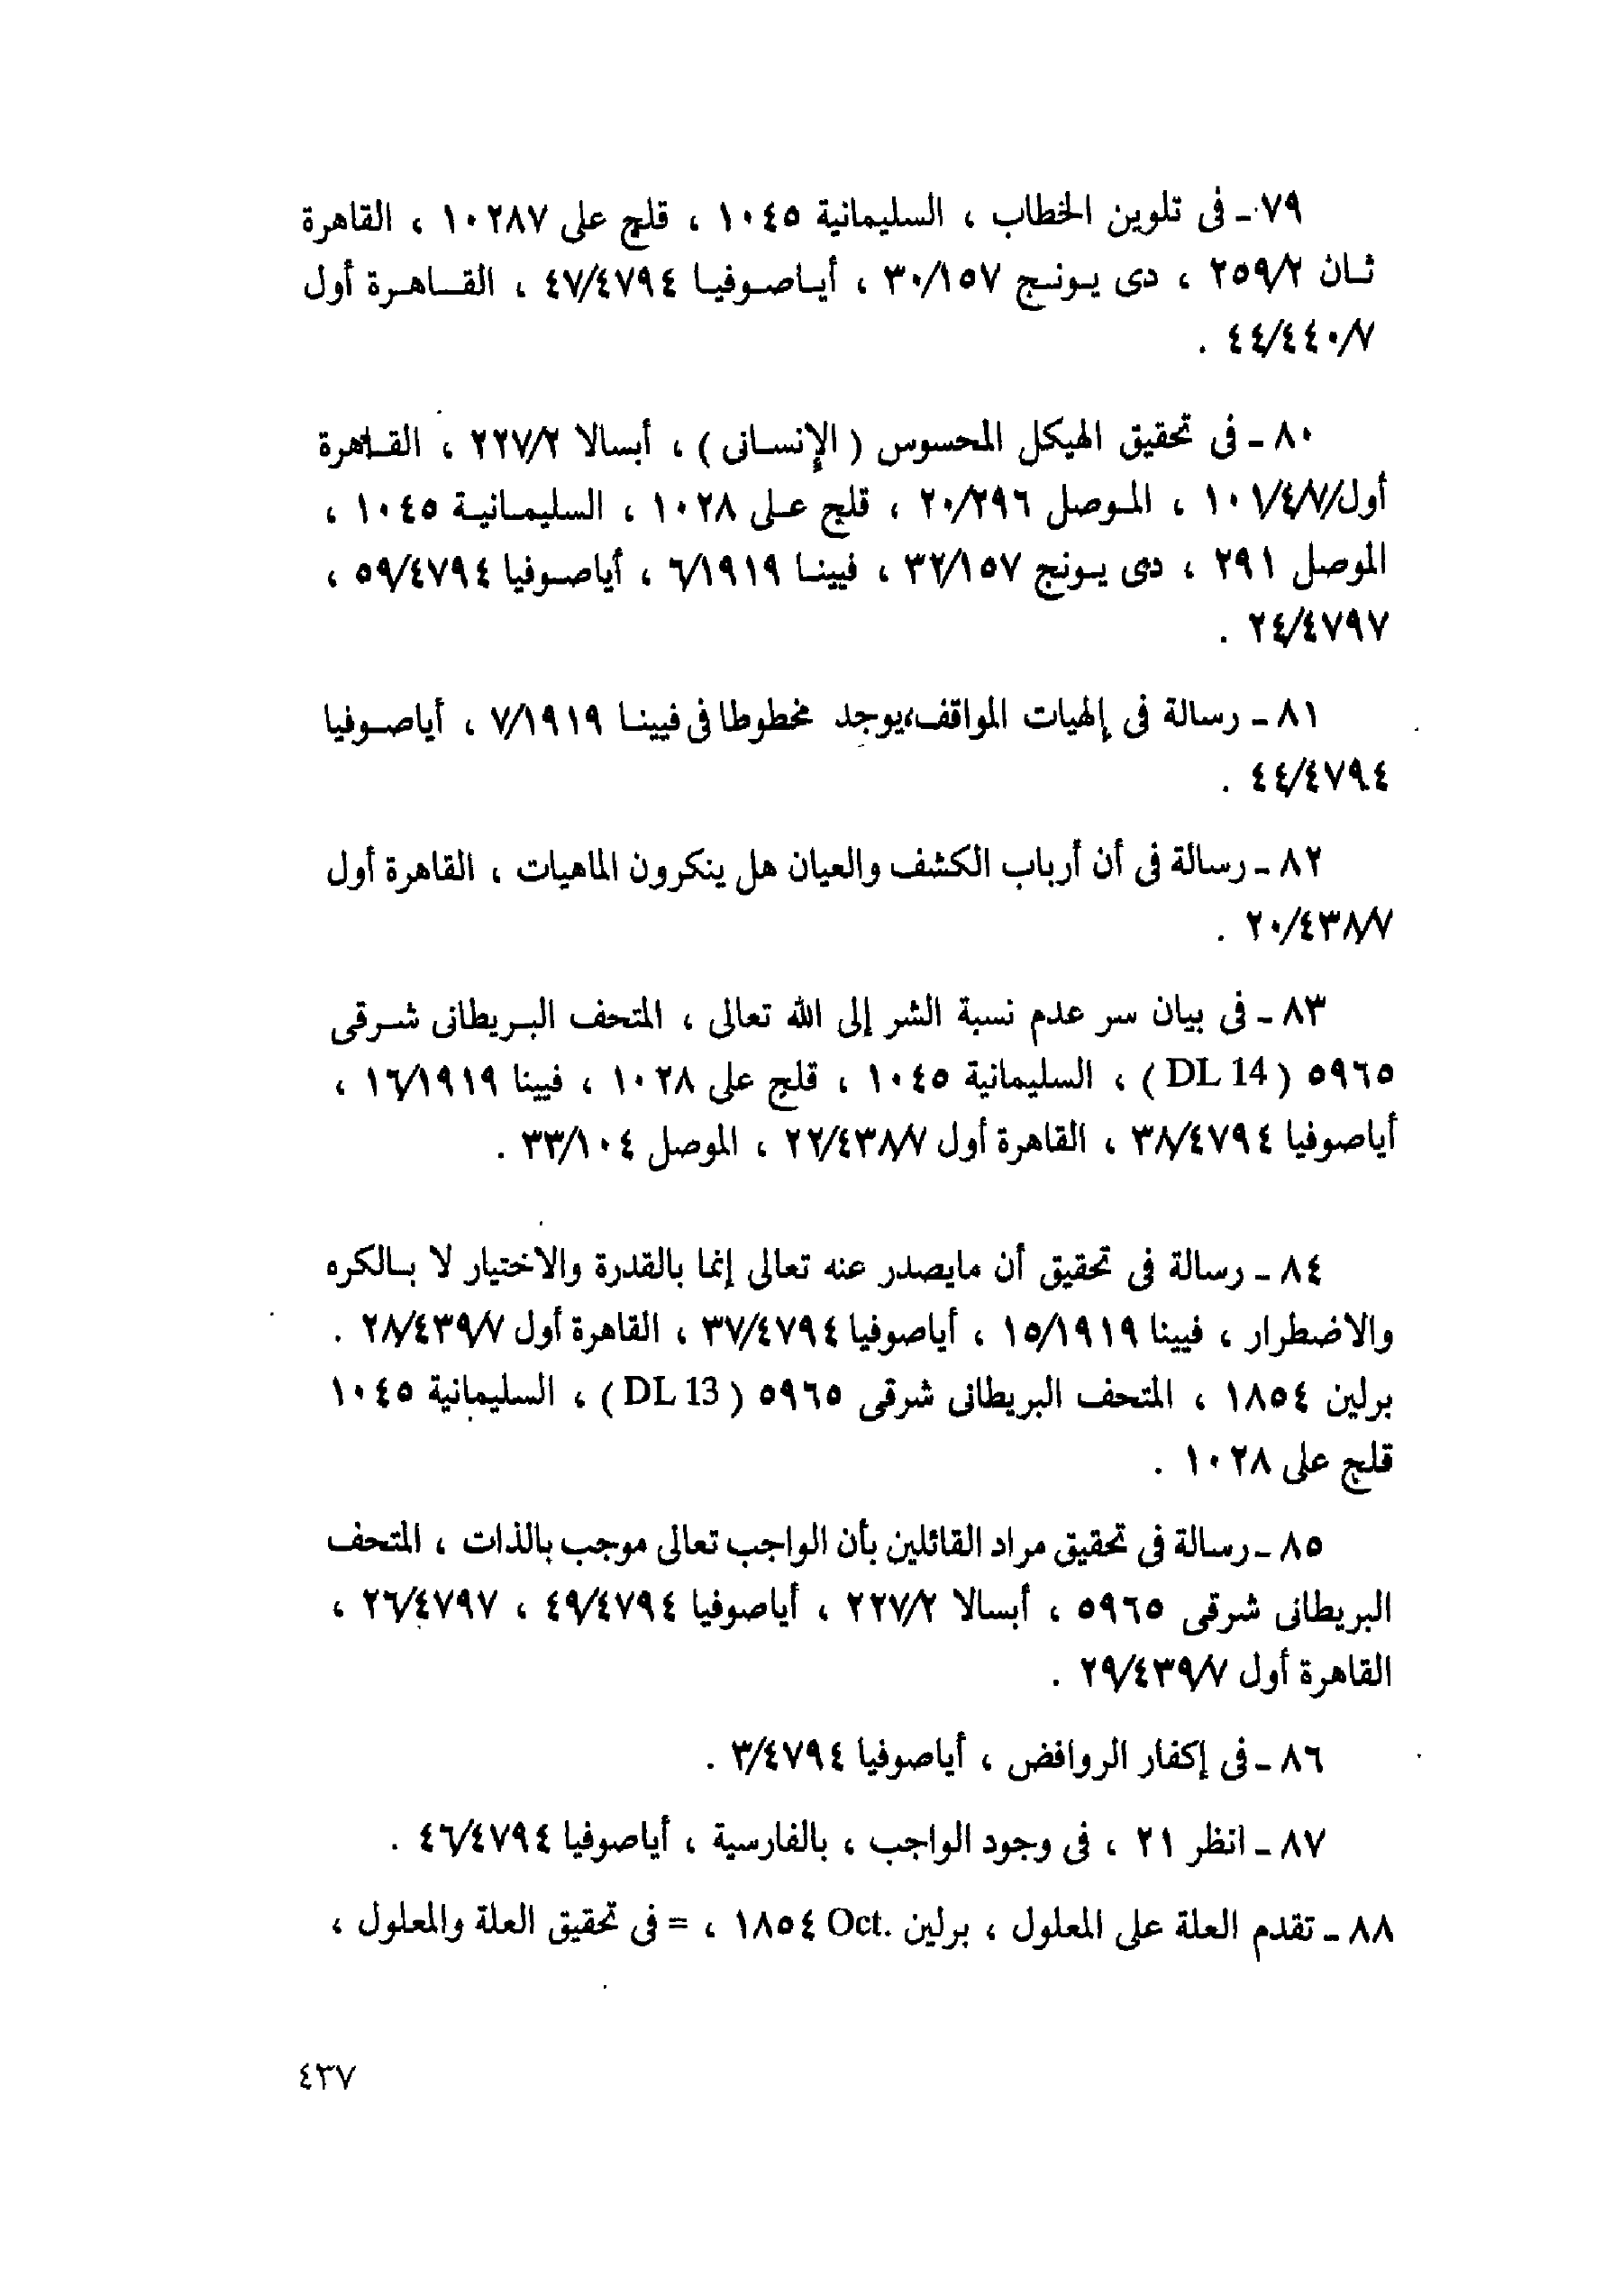 ٧٩ - فى تلوين الخطاب ، السليمانية ١٠٤٥ ، قلج على ١٠٢٨٧ ، القاهرة
ثان ٢٥٩/٢ ، دى يونج ٣٠/١٥٧ ، أياصوفيا ٤٧/٤٧٩٤ ، القاهرة أول
٤٤/٤٤٠/٧ .
٨٠ - فى تحقيق الهيكل المحسوس ( الإنسانى ) ، أبسالا ٢٢٧/٢ ، القاهرة
أول/١٠١/٤/٧ ، الموصل ٢٠/٢٩٦ ، قلج على ١٠٢٨ ، السليمانية ١٠٤٥ ،
الموصل ٢٩١ ، دى يونج ٣٢/١٥٧ ، فيينا ٦/١٩١٩ ، أياصوفيا ٥٩/٤٧٩٤ ،
٢٤/٤٧٩٧ .
٨١ - رسالة فى إلهيات المواقف،يوجد مخطوطا فى فيينا ٧/١٩١٩ ، أياصوفيا
٤٤/٤٧٩٤ .
٨٢ - رسالة فى أن أرباب الكشف والعيان هل ينكرون الماهيات ، القاهرة أول
٢٠/٤٣٨/٧ .
٨٣ - فى بيان سر عدم نسبة الشر إلى الله تعالى ، المتحف البريطانى شرقى
٥٩٦٥ ( DL 14 ) ، السليمانية ١٠٤٥ ، قلج على ١٠٢٨ ، فيينا ١٦/١٩١٩ ،
أياصوفيا ٣٨/٤٧٩٤ ، القاهرة أول ٢٢/٤٣٨/٧ ، الموصل ٣٣/١٠٤ .
٨٤ - رسالة فى تحقيق أن مايصدر عنه تعالى إنما بالقدرة والاختيار لا بالكره
والاضطرار ، فيينا ١٥/١٩١٩ ، أياصوفيا ٣٧/٤٧٩٤ ، القاهرة أول ٢٨/٤٣٩/٧ .
برلين ١٨٥٤ ، المتحف البريطانى شرقى ٥٩٦٥ ( DL 13 ) ، السليمانية ١٠٤٥
قلج على ١٠٢٨ .
٨٥ - رسالة فى تحقيق مراد القائلين بأن الواجب تعالى موجب بالذات ، المتحف
البريطانى شرقى ٥٩٦٥ ، أبسالا ٢٢٧/٢ ، أياصوفيا ٤٩/٤٧٩٤ ، ٢٦/٤٧٩٧ ،
القاهرة أول ٢٩/٤٣٩/٧ .
٨٦ - فى إكفار الروافض ، أياصوفيا ٣/٤٧٩٤ .
٨٧ - انظر ٢١ ، فى وجود الواجب ، بالفارسية ، أياصوفيا ٤٦/٤٧٩٤ .
٨٨ - تقدم العلة على المعلول ، برلين .Oct ١٨٥٤ ، = فى تحقيق العلة والمعلول ،
٤٣٧